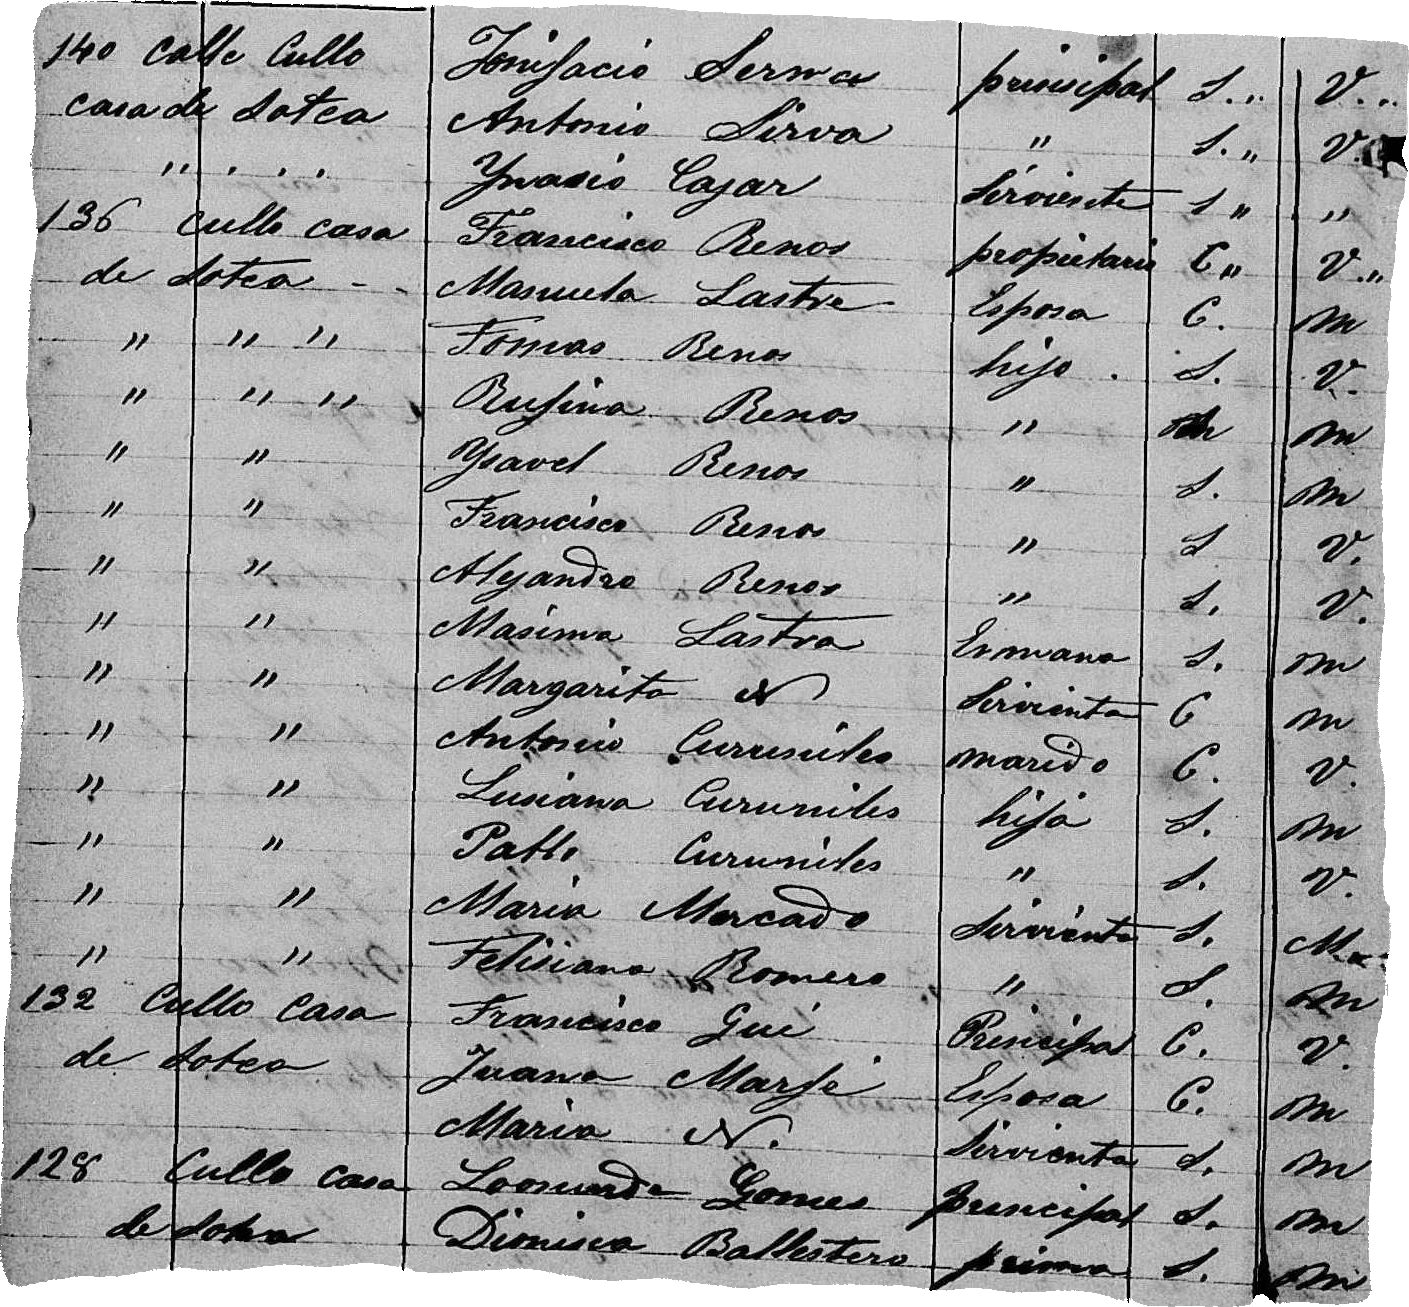 140 Calle Cullo Bonifacio Serna principal S. „ V. „
casa de Sotea Antonio Sirva " S. „ V.
" . . . Ynasio Casar Sirviente S " "
136 Cullo casa Francisco Renos propietario C „ V. „
de Sotea - - Manuela Lastre Esposa C. m
" " " Tomas Renos hijo . S. V.
" " " Rufina Renos " m
" " Ysavel Renos " S. m
" " Francisco Renos " S V.
" " Alejandro Renos " S. V.
" " Masima Lastra Ermana S. m
" " Margarita N Sirvienta C m
" " Antonio Curuniles marido C. V.
" " Lusiana Curuniles hija S. m
" " Pablo Curuniles " S. V.
" " Maria Mercado Sirvienta S. M
" " Felisiana Romero " S. m
132 Cullo Casa Francisco Gué Principal C. V.
de Sotea Juana Marfé Esposa C. m
Maria N. Sirvienta S. m
128 Cullo casa Leonarda Gomes principal S. m
de Sotea Dionisia Ballestero prima S. m